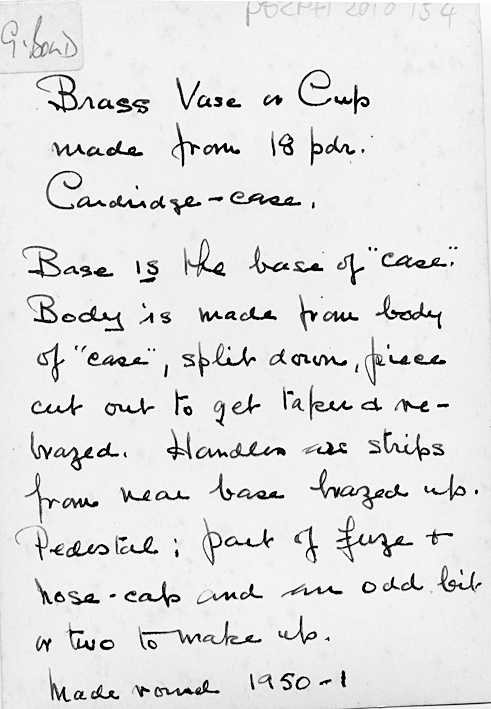 G. Bond
2010 134
Brass Vase or Cup
made from 18 pdr.
Cardridge-case.
Base is the base of "case".
Body is made from body
of "case", split down, piece
cut out to get taper & re-
brazed. Handles are strips
from near base brazed up.
Pedestal; part of fuze +
nose-cap and an odd bit
or two to make up.
Made round 1950-1